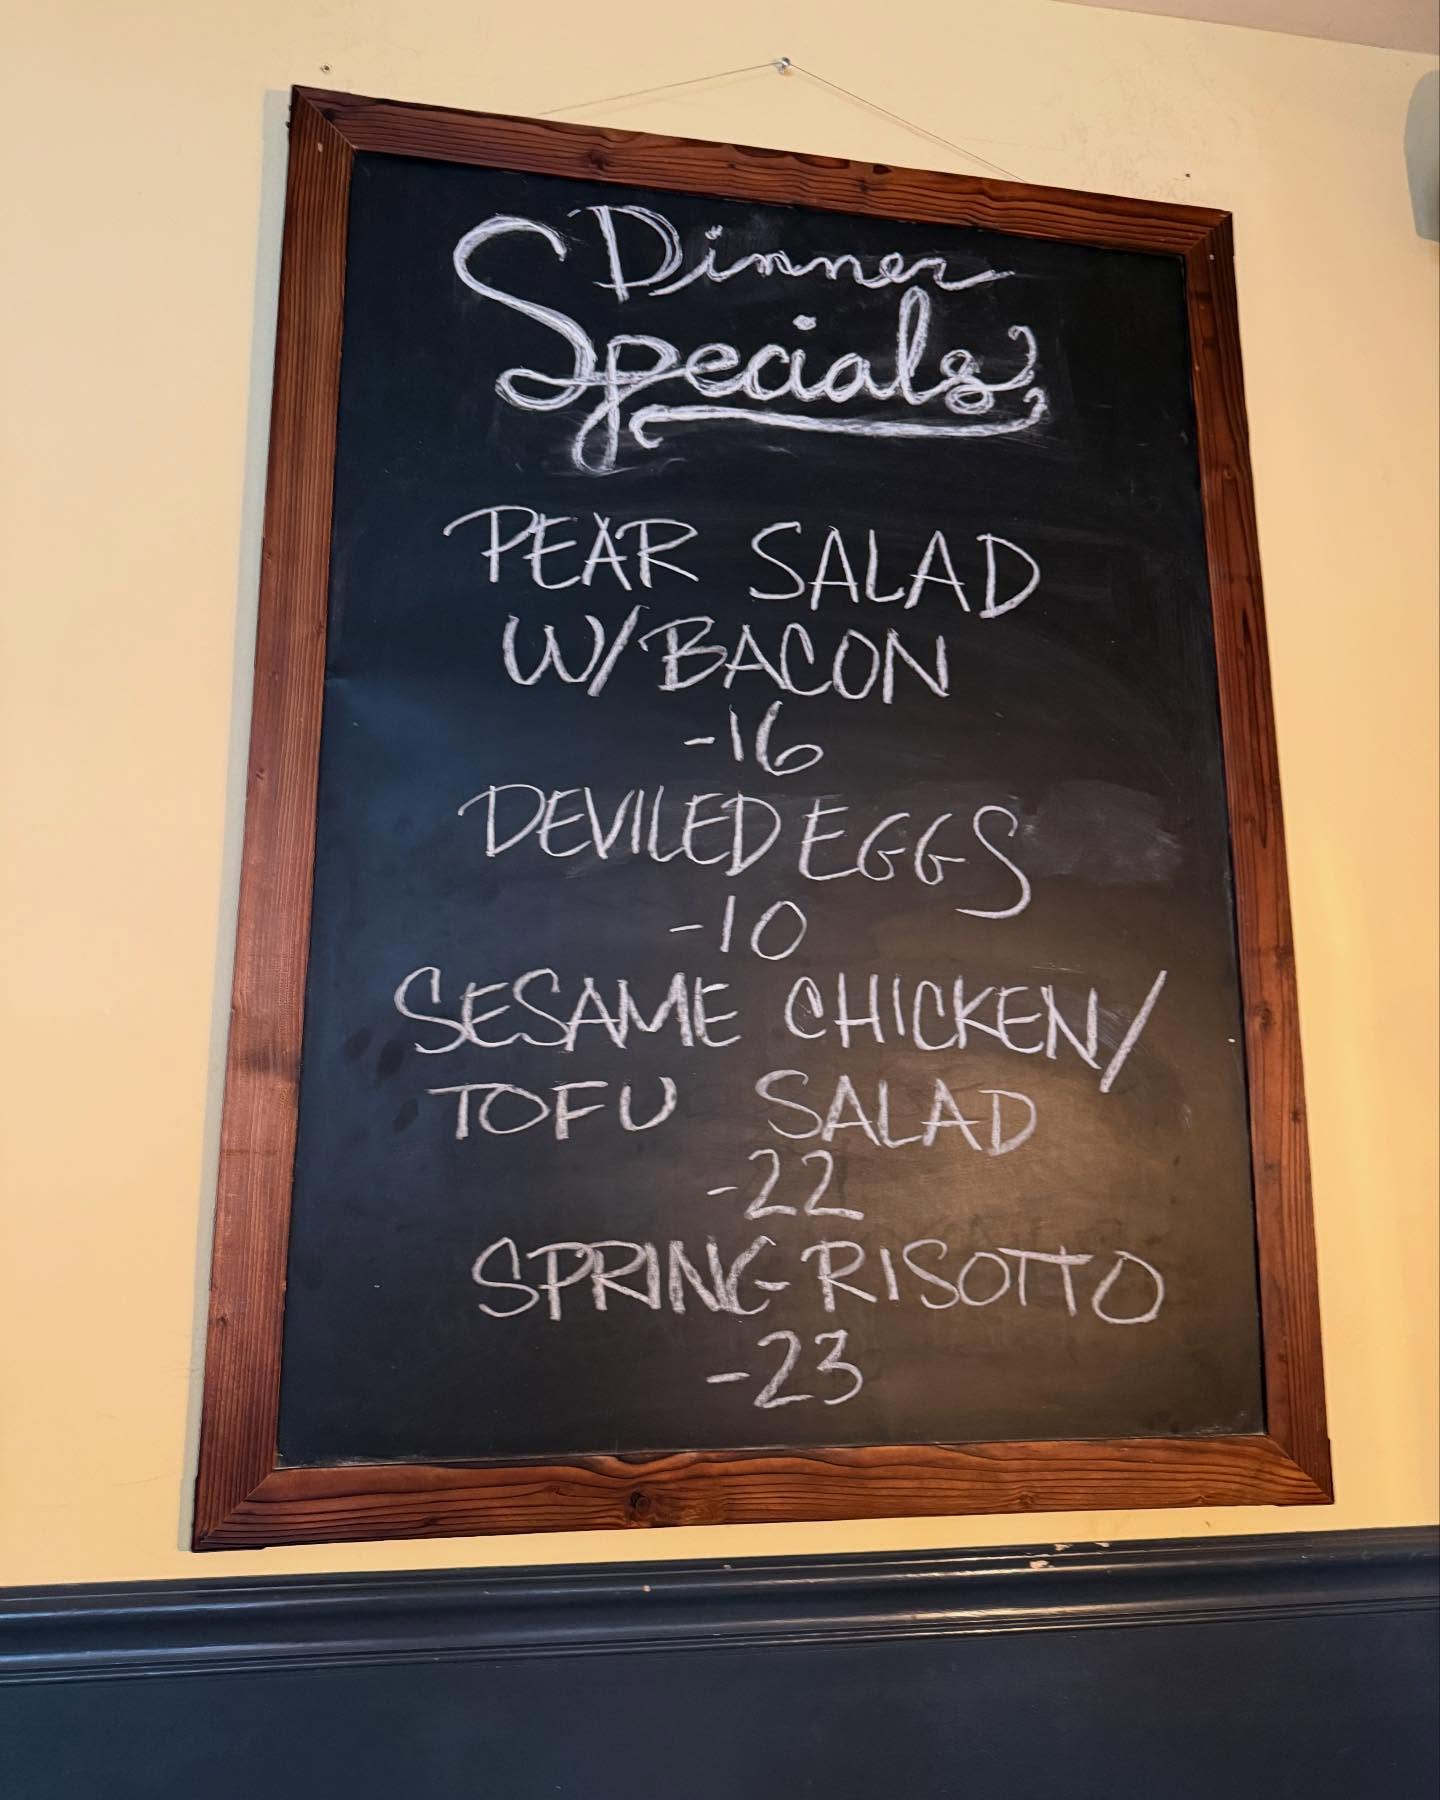 Dinner
Specials
PEAR SALAD
W/BACON
-16
DEVILED EGGS
-10
SESAME CHICKEN/
TOFU SALAD
-22
SPRING RISOTTO
-23